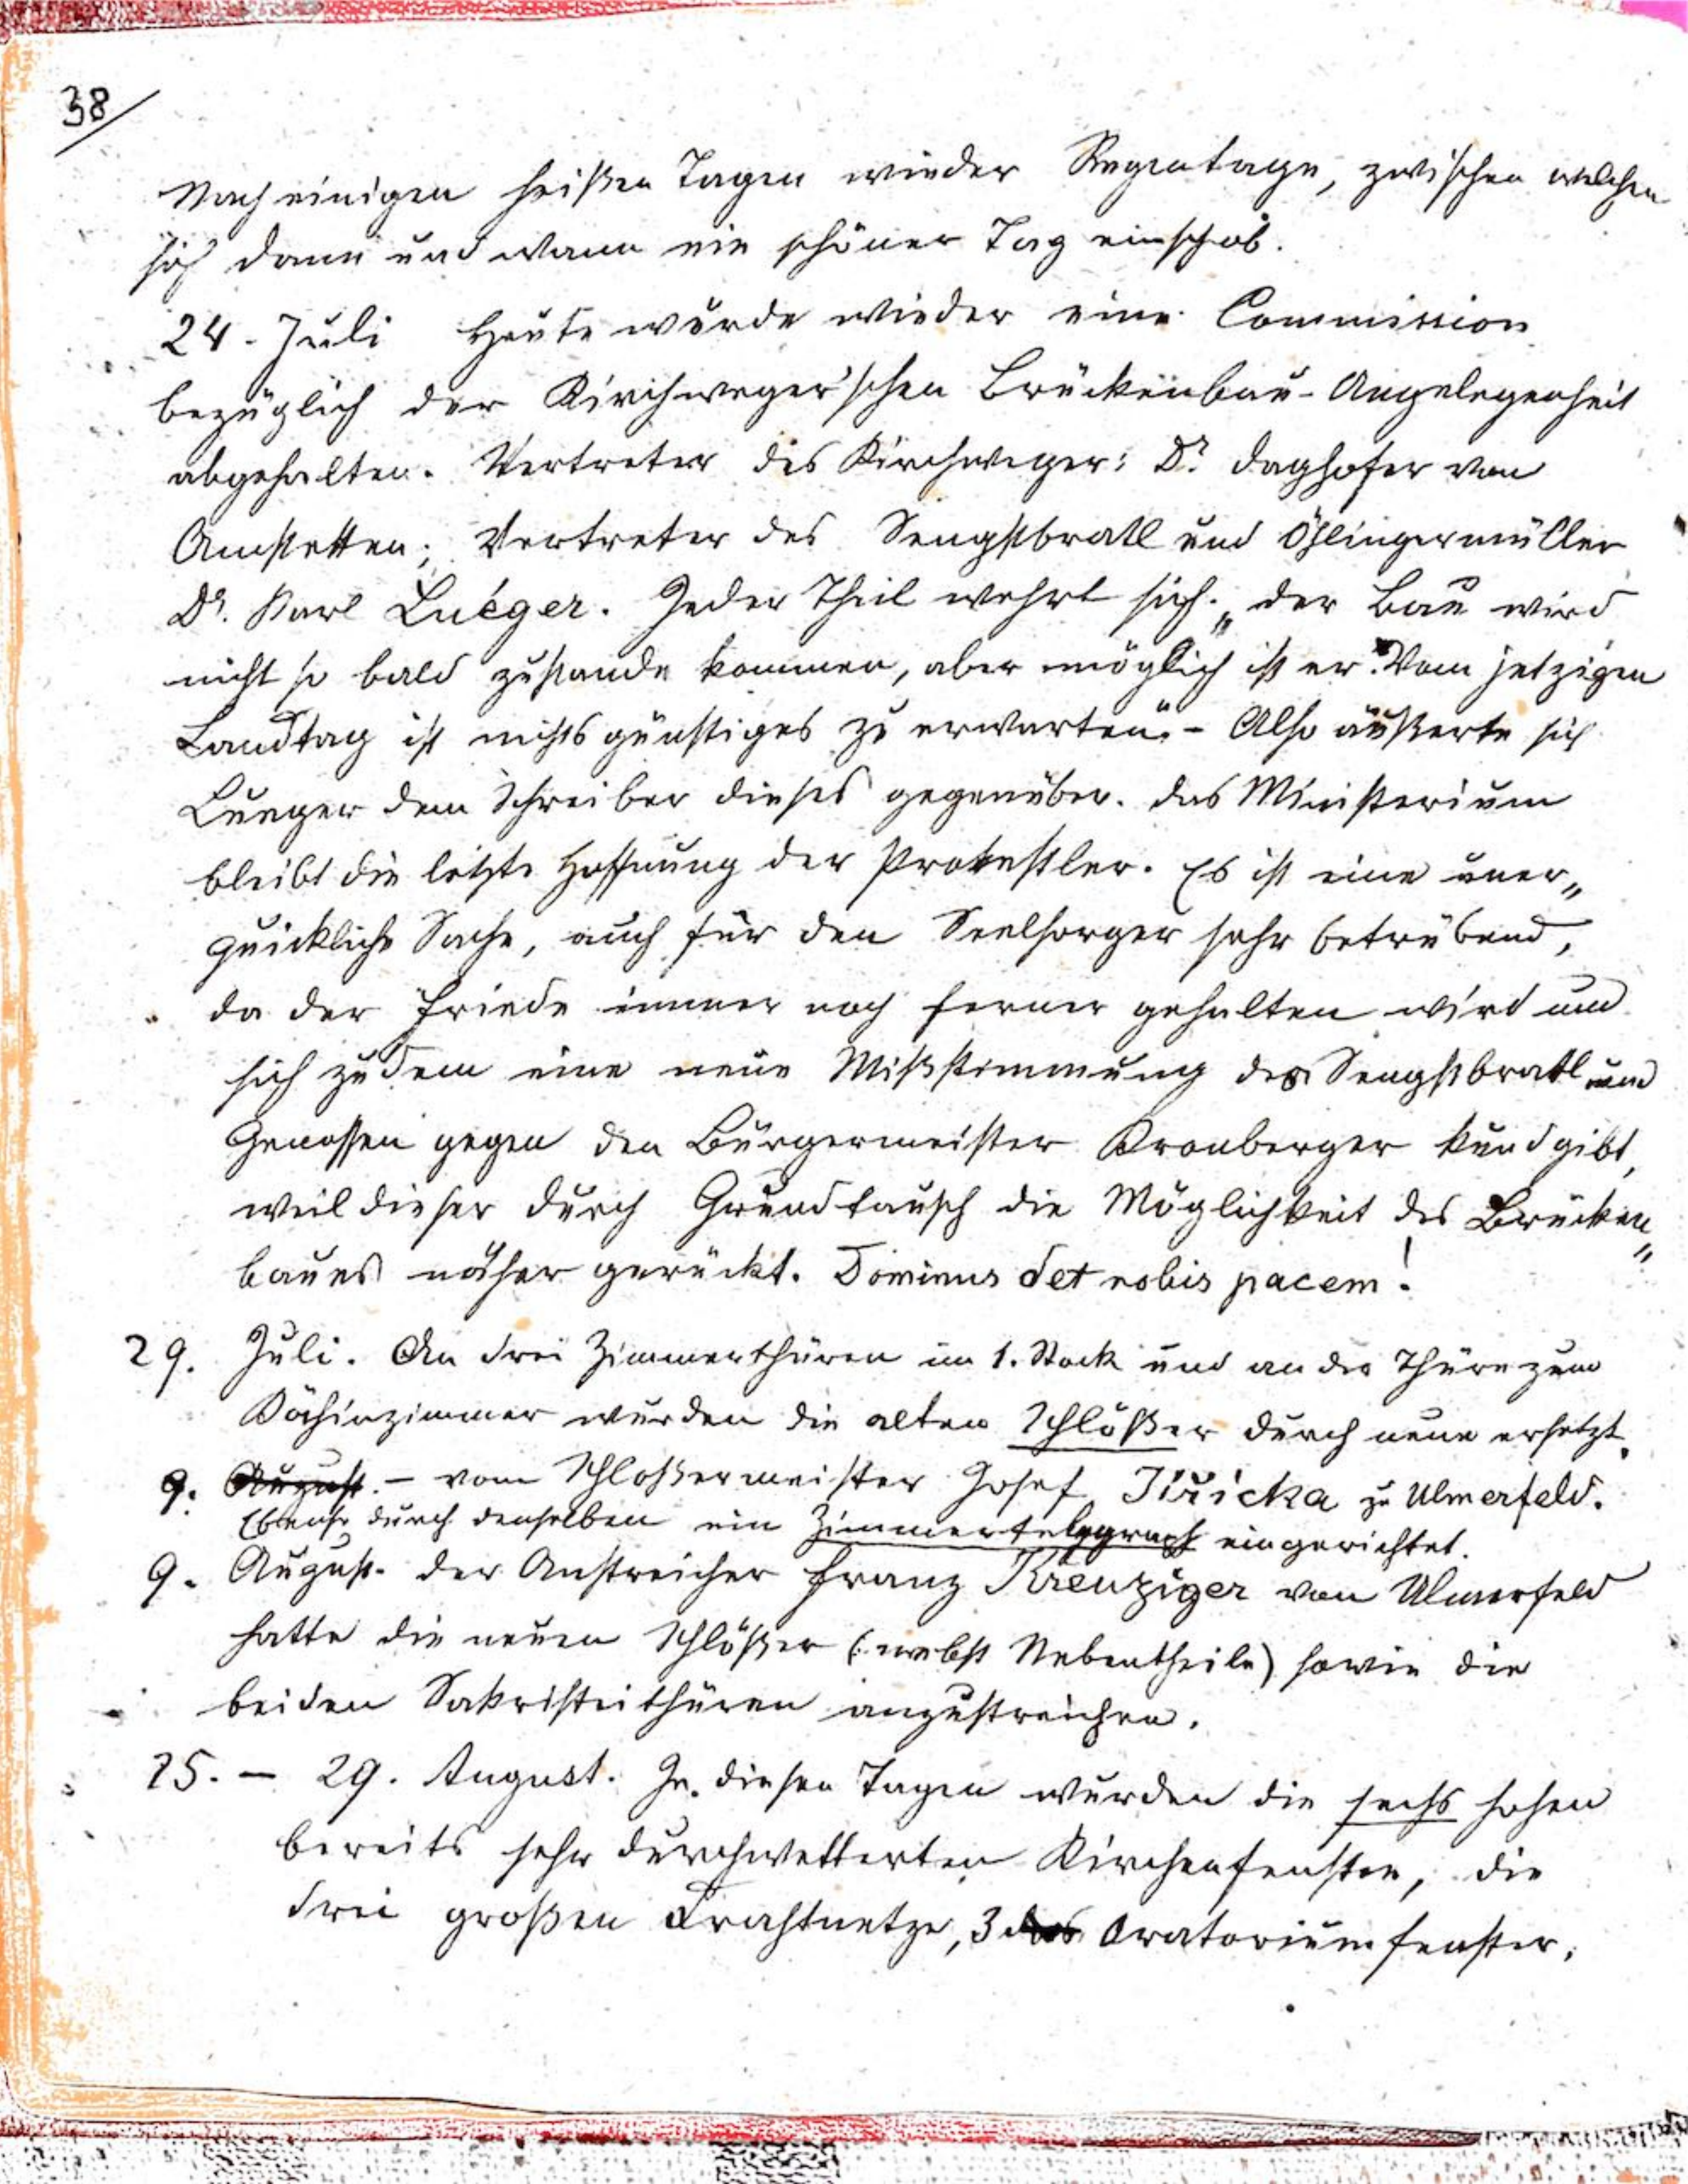 38
Nach einigen heißen Tagen wieder Regentage, zwischen welchen
sich dann und wann ein schöner Tag einschob.
24. Juli Heute wurde wieder eine Commission
bezüglich der Kirchweger'schen Brückenbau-Angelegenheit
abgehalten. Vertreter des Kirchweger: Dr. Daghofer von
Amstetten; Vertreter des Sengstbratl und Öhlingermüller
Dr. Karl Luéger. Jeder Theil wehrt sich. „Der Bau wird
nicht so bald zustande kommen, aber möglich ist er. Vom jetzigen
Landtag ist nichts günstiges zu erwarten." - Also äußerte sich
Lueger dem Schreiber dieses gegenüber. Das Ministerium
bleibt die letzte Hoffnung der Protestler. Es ist eine uner„
quickliche Sache, auch für den Seelsorger sehr betrübend,
da der Friede immer noch ferner gehalten wird und
sich zudem eine neue Mißstimmung des Sengstbratl und
Genossen gegen den Bürgermeister Kronberger kundgibt,
weil dieser durch Grundtausch die Möglichkeit des Brücken„
baues näher gerückt. Dominus det nobis pacem!
29. Juli. An drei Zimmerthüren im 1. Stock und an der Thüre zum
Köchinzimmer wurden die alten Schlößer durch neue ersetzt.
9. August. - vom Schloßermeister Josef Jiřicka zu Ulmerfeld.
Ebenso durch denselben ein Zimmertelegraph eingerichtet.
9. August. Der Anstreicher Franz Kreuziger von Ulmerfeld
hatte die neuen Schlößer (: nebst Nebentheile) sowie die
beiden Sakristeithüren anzustreichen.
25. - 29. August. In diesen Tagen wurden die sechs hohen
bereits sehr durchwetterten Kirchenfenster, die
drei großen Drahtnetze, 3 des Oratoriumfenster,